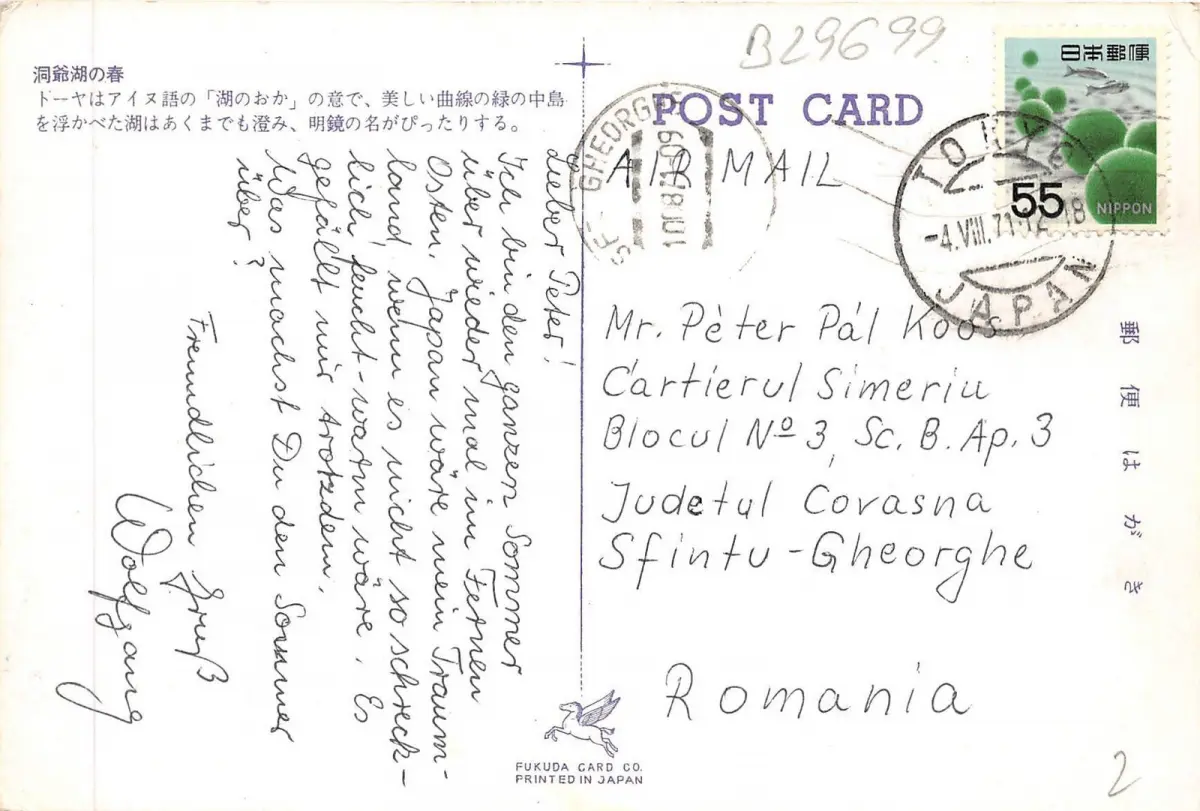 B29699
洞爺湖の春
トーヤはアイヌ語の「湖のおか」の意で、美しい曲線の緑の中島
を浮かべた湖はあくまでも澄み、明鏡の名がぴったりする。
POST CARD
AIR MAIL
日本郵便
55
NIPPON
TOKYO
-4.VIII.71
18
JAPAN
GHEORGHE
Lieber Peter!
Ich bin den ganzen Sommer
über wieder mal im Fernen
Osten. Japan wäre mein Traum-
land, wenn es nicht so schreck-
lich feucht-warm wäre. Es
gefällt mir trotzdem.
Was machst Du den Sommer
über?
Freundlichen Gruß
Wolfgang
Mr. Pèter Pál Koos
Cartierul Simeriu
Blocul Nº 3, Sc. B. Ap. 3
Judetul Covasna
Sfintu-Gheorghe
Romania
郵便はがき
FUKUDA CARD CO.
PRINTED IN JAPAN
2